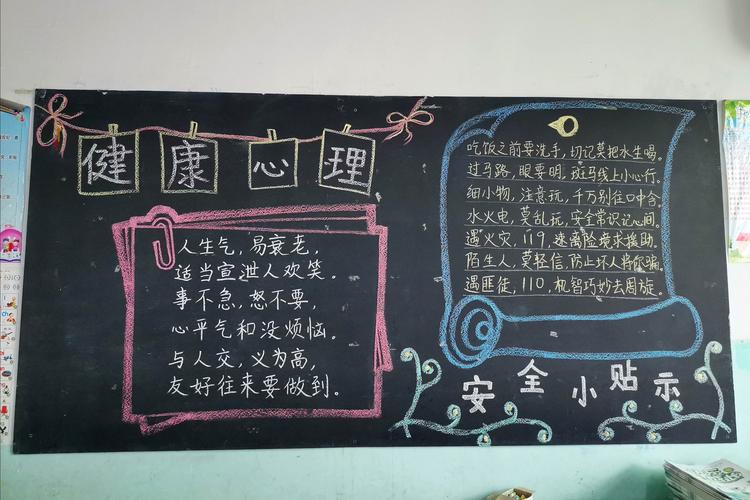 健康心理
人生气，易衰老，
适当宣泄人欢笑。
事不急，怒不要，
心平气和没烦恼。
与人交，义为高，
友好往来要做到。
吃饭之前要洗手，切记莫把水生喝。
过马路，眼要明，斑马线上小心行。
细小物，注意玩，千万别往口中含。
水火电，莫乱玩，安全常识记心间。
遇火灾，119，速离险境求援助。
陌生人，莫轻信，防止坏人将你骗。
遇匪徒，110，机智巧妙去周旋。
安全小贴示